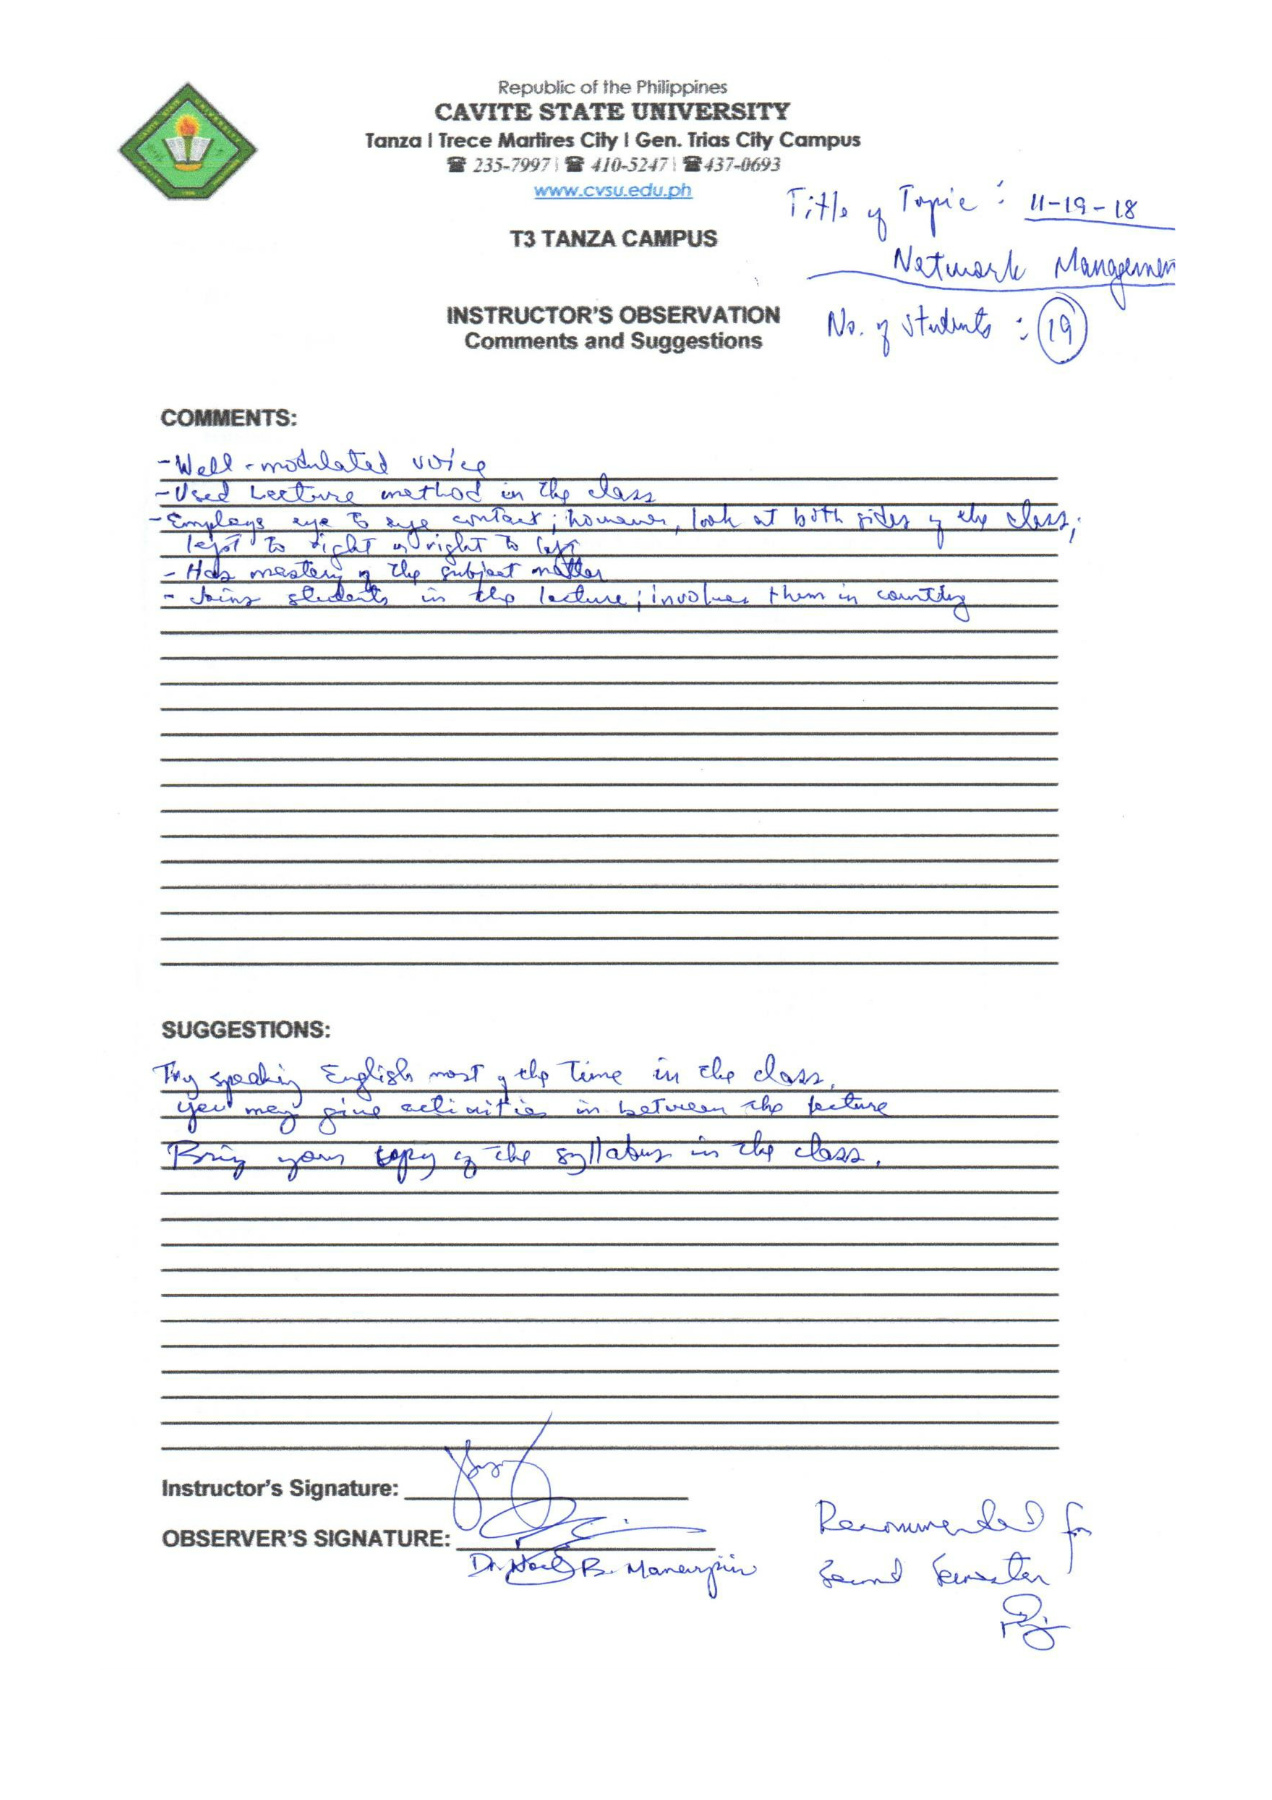 Republic of the Philippines
CAVITE STATE UNIVERSITY
Tanza | Trece Martires City | Gen. Trias City Campus
☎ 235-7997 | ☎ 410-5247 | ☎437-0693
www.cvsu.edu.ph
Title of Topic : 11-19-18
T3 TANZA CAMPUS
Network Managemen
INSTRUCTOR'S OBSERVATION
No. of students : 19
Comments and Suggestions
COMMENTS:
- Well-modulated voice
- Used Lecture method in the class
- Employs eye to eye contact; however, look at both sides of the class;
left to right or right to left
- Has mastery of the subject matter
- Joins students in the lecture; involves them in
SUGGESTIONS:
Try speaking English most of the time in the class.
You may give activities in between the lecture
Bring your copy of the syllabus in the class.
Instructor's Signature:
OBSERVER'S SIGNATURE:
Dr. Noel B. Manarpiis
Recommended for
Second Semester